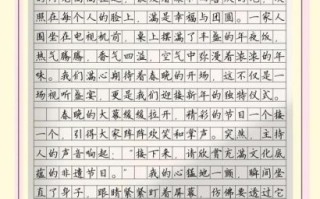 照在每个人的脸上,满是幸福与团圆。一家人
围坐在电视机前,桌上摆满了丰盛的年夜饭,
热气腾腾,香气四溢,空气中弥漫着浓浓的年
味。我们满心期待着春晚的开场,这不仅是一
场视听盛宴,更是我们迎接新年的独特仪式。
春晚的大幕缓缓拉开,精彩的节目一个接
一个,引得大家阵阵欢笑和掌声。突然,主持
人的声音响起:"接下来,请欣赏充满文化底
蕴的非遗节目。"我的心猛地一颤,瞬间坐
直了身子,眼睛紧紧盯着屏幕,仿佛要透过它